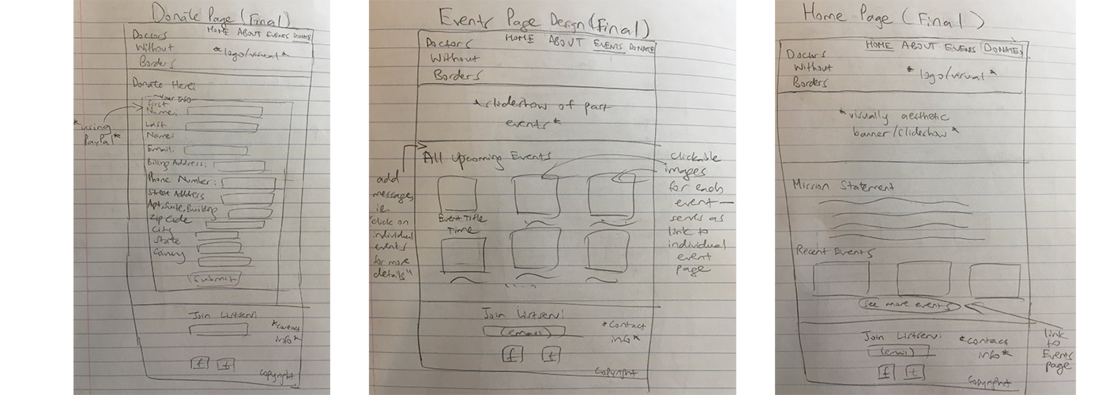 Donate Page (Final)
Doctors
Without
Borders
HOME ABOUT EVENTS DONATE
*logo/visual*
Donate Here:
First
Name:
Last
Name:
Email:
Billing Address:
Phone Number:
Street Address
Zip Code
City
State
Submit
*using
PayPal*
Join Listserv:
*contact
info*
f t
Copyright
Events Page Design (Final)
Doctors
Without
Borders
HOME ABOUT EVENTS DONATE
*slideshow of past
events*
All Upcoming Events
Event Title
Time
add
messages
ie.
"click on
individual
events
for more
details"
clickable
images
for each
event—
serves as
link to
individual
event
page
Join Listserv:
(email)
*contact
info*
f t
Copyright
Home Page (Final)
Doctors
Without
Borders
HOME ABOUT EVENTS DONATE
*logo/visual*
*visually aesthetic
banner/slideshow*
Mission Statement
Recent Events
See more events
link
to
Events
page
Join Listserv:
(email)
*contact
info*
f t
Copyright